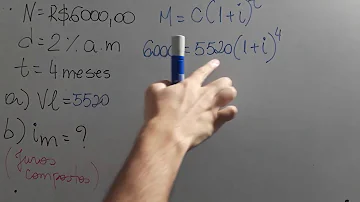 N=R$6000,00
d=2% a.m
t=4 meses
a) Vl=5520
b) im=?
(Juros
compostos)
M=C(1+i)^t
6000=5520(1+i)^4